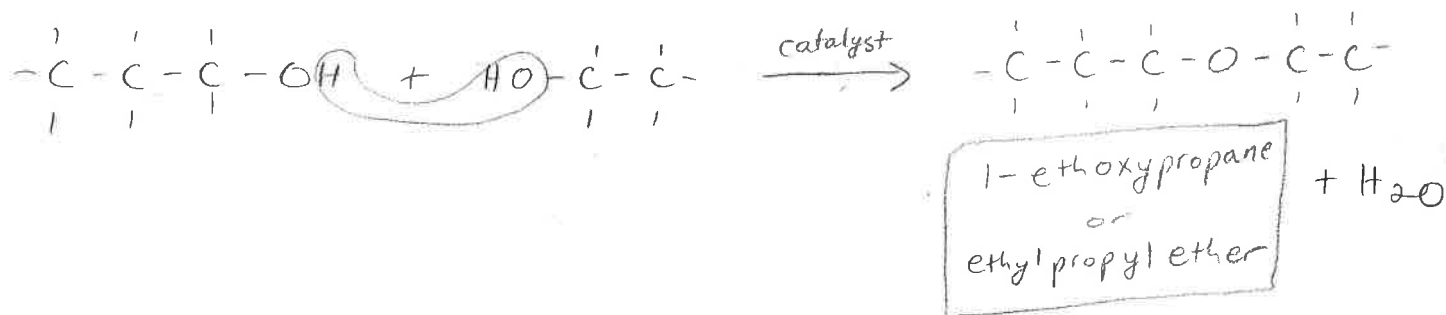 - C - C - C - OH + HO - C - C - catalyst → - C - C - C - O - C - C -
1-ethoxypropane
or
ethyl propyl ether
+ H₂O